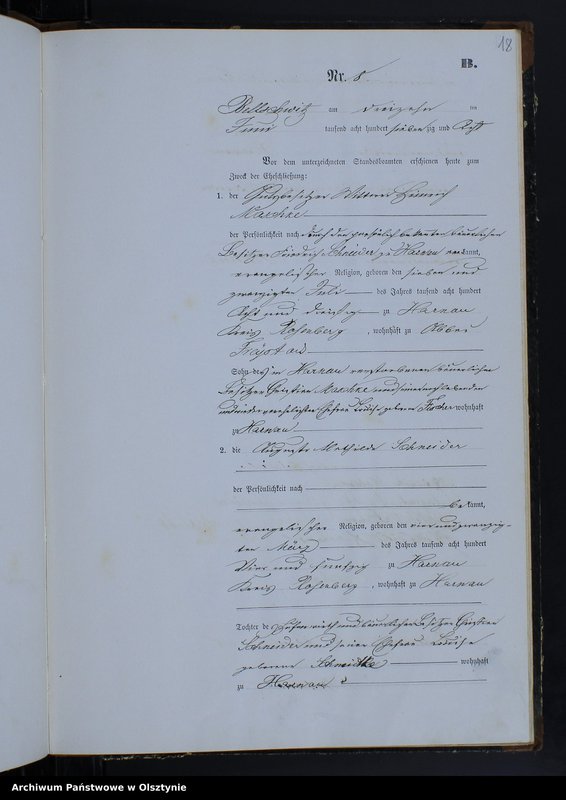 18
B.
Nr. 8
Bellschwitz am dreizehn ten
Juni tausend acht hundert siebenzig und Acht
Vor dem unterzeichneten Standesbeamten erschienen heute zum
Zweck der Eheschließung:
1. der Gutsbesitzer Wittwer Heinrich
Maschke
der Persönlichkeit nach durch den persönlich bekannten bäuerlichen
Besitzer Friedrich Schneider zu Harnau kannt,
evangelischer Religion, geboren den sieben und
zwanzigsten Juli des Jahres tausend acht hundert
Acht und dreißig zu Harnau
Kreis Rosenberg, wohnhaft zu Abbau
Sohn des in Harnau verstorbenen bäuerlichen
Besitzer Maschke und
Ehefrau Louise geborene Fischer wohnhaft
zu Harnau
2. die Auguste Mathilde Schneider
der Persönlichkeit nach
bekannt,
evangelischer Religion, geboren den vier und zwanzig-
ten März des Jahres tausend acht hundert
Vier und fünfzig zu Harnau
Kreis Rosenberg, wohnhaft zu Harnau
Tochter des und bäuerlichen Besitzer
Schneider und seiner Ehefrau Louise
geborene wohnhaft
zu Harnau
Archiwum Państwowe w Olsztynie